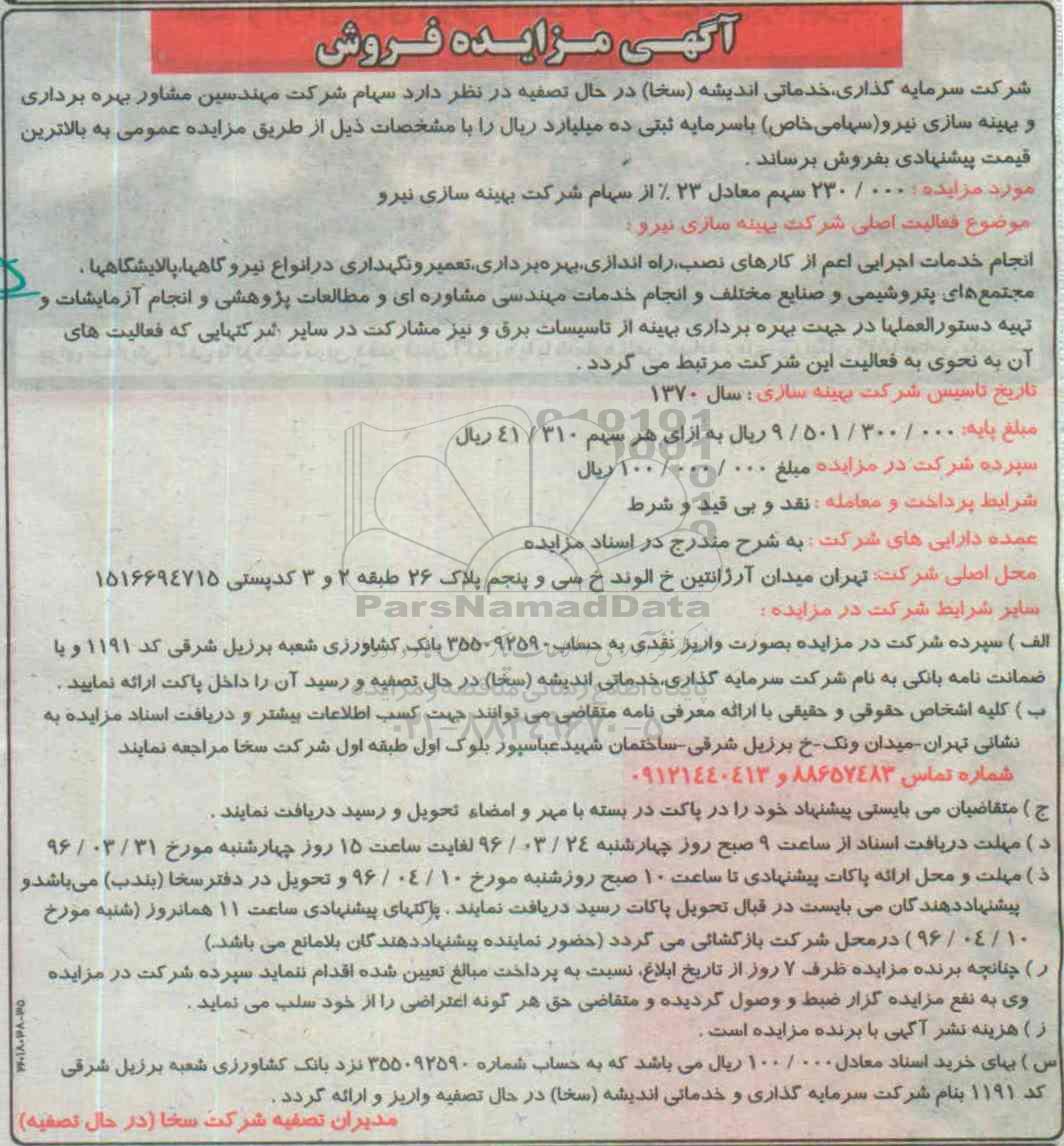 آگهی مزایده فروش
شرکت سرمایه گذاری،خدماتی اندیشه (سخا) در حال تصفیه در نظر دارد سهام شرکت مهندسین مشاور بهره برداری
و بهینه سازی نیرو(سهامی‌خاص) باسرمایه ثبتی ده میلیارد ریال را با مشخصات ذیل از طریق مزایده عمومی به بالاترین
قیمت پیشنهادی بفروش برساند .
مورد مزایده : ۲۳۰/۰۰۰ سهم معادل ۲۳ ٪ از سهام شرکت بهینه سازی نیرو
موضوع فعالیت اصلی شرکت بهینه سازی نیرو :
انجام خدمات اجرایی اعم از کارهای نصب،راه اندازی،بهره‌برداری،تعمیرونگهداری درانواع نیروگاهها،پالایشگاهها ،
مجتمع‌های پتروشیمی و صنایع مختلف و انجام خدمات مهندسی مشاوره ای و مطالعات پژوهشی و انجام آزمایشات و
تهیه دستورالعملها در جهت بهره برداری بهینه از تاسیسات برق و نیز مشارکت در سایر شرکتهایی که فعالیت های
آن به نحوی به فعالیت این شرکت مرتبط می گردد .
تاریخ تاسیس شرکت بهینه سازی : سال ۱۳۷۰
مبلغ پایه: ۹/۵۰۱/۳۰۰/۰۰۰ ریال به ازای هر سهم ۴۱/۳۱۰ ریال
سپرده شرکت در مزایده مبلغ ۱۰۰/۰۰۰/۰۰۰ ریال
شرایط پرداخت و معامله : نقد و بی قید و شرط
عمده دارایی های شرکت : به شرح مندرج در اسناد مزایده
محل اصلی شرکت: تهران میدان آرژانتین خ الوند خ سی و پنجم پلاک ۲۶ طبقه ۲ و ۳ کدپستی ۱۵۱۶۶۹۴۷۱۵
ParsNamadData
سایر شرایط شرکت در مزایده :
الف ) سپرده شرکت در مزایده بصورت واریز نقدی به حساب ۳۵۵۰۹۲۵۹۰ بانک کشاورزی شعبه برزیل شرقی کد ۱۱۹۱ و یا
ضمانت نامه بانکی به نام شرکت سرمایه گذاری،خدماتی اندیشه (سخا) در حال تصفیه و رسید آن را داخل پاکت ارائه نمایید .
ب ) کلیه اشخاص حقوقی و حقیقی با ارائه معرفی نامه متقاضی می توانند جهت کسب اطلاعات بیشتر و دریافت اسناد مزایده به
۰۲۱-۸۸۳۴۹۶۷۰-۵
نشانی تهران-میدان ونک-خ برزیل شرقی-ساختمان شهیدعباسپور بلوک اول طبقه اول شرکت سخا مراجعه نمایند
شماره تماس ۸۸۶۵۷۴۸۳ و ۰۹۱۲۱۴۴۰۴۱۳
ج ) متقاضیان می بایستی پیشنهاد خود را در پاکت در بسته با مهر و امضاء تحویل و رسید دریافت نمایند .
د ) مهلت دریافت اسناد از ساعت ۹ صبح روز چهارشنبه ۹۶/۰۳/۲۴ لغایت ساعت ۱۵ روز چهارشنبه مورخ ۹۶/۰۳/۳۱
ذ ) مهلت و محل ارائه پاکات پیشنهادی تا ساعت ۱۰ صبح روزشنبه مورخ ۹۶/۰۴/۱۰ و تحویل در دفترسخا (بندب) می‌باشدو
پیشنهاددهندگان می بایست در قبال تحویل پاکات رسید دریافت نمایند . پاکتهای پیشنهادی ساعت ۱۱ همانروز (شنبه مورخ
۹۶/۰۴/۱۰ ) درمحل شرکت بازگشائی می گردد (حضور نماینده پیشنهاددهندگان بلامانع می باشد.)
ر ) چنانچه برنده مزایده ظرف ۷ روز از تاریخ ابلاغ، نسبت به پرداخت مبالغ تعیین شده اقدام ننماید سپرده شرکت در مزایده
وی به نفع مزایده گزار ضبط و وصول گردیده و متقاضی حق هر گونه اعتراضی را از خود سلب می نماید .
ز ) هزینه نشر آگهی با برنده مزایده است .
س ) بهای خرید اسناد معادل ۱۰۰/۰۰۰ ریال می باشد که به حساب شماره ۳۵۵۰۹۲۵۹۰ نزد بانک کشاورزی شعبه برزیل شرقی
کد ۱۱۹۱ بنام شرکت سرمایه گذاری و خدماتی اندیشه (سخا) در حال تصفیه واریز و ارائه گردد .
مدیران تصفیه شرکت سخا (در حال تصفیه)